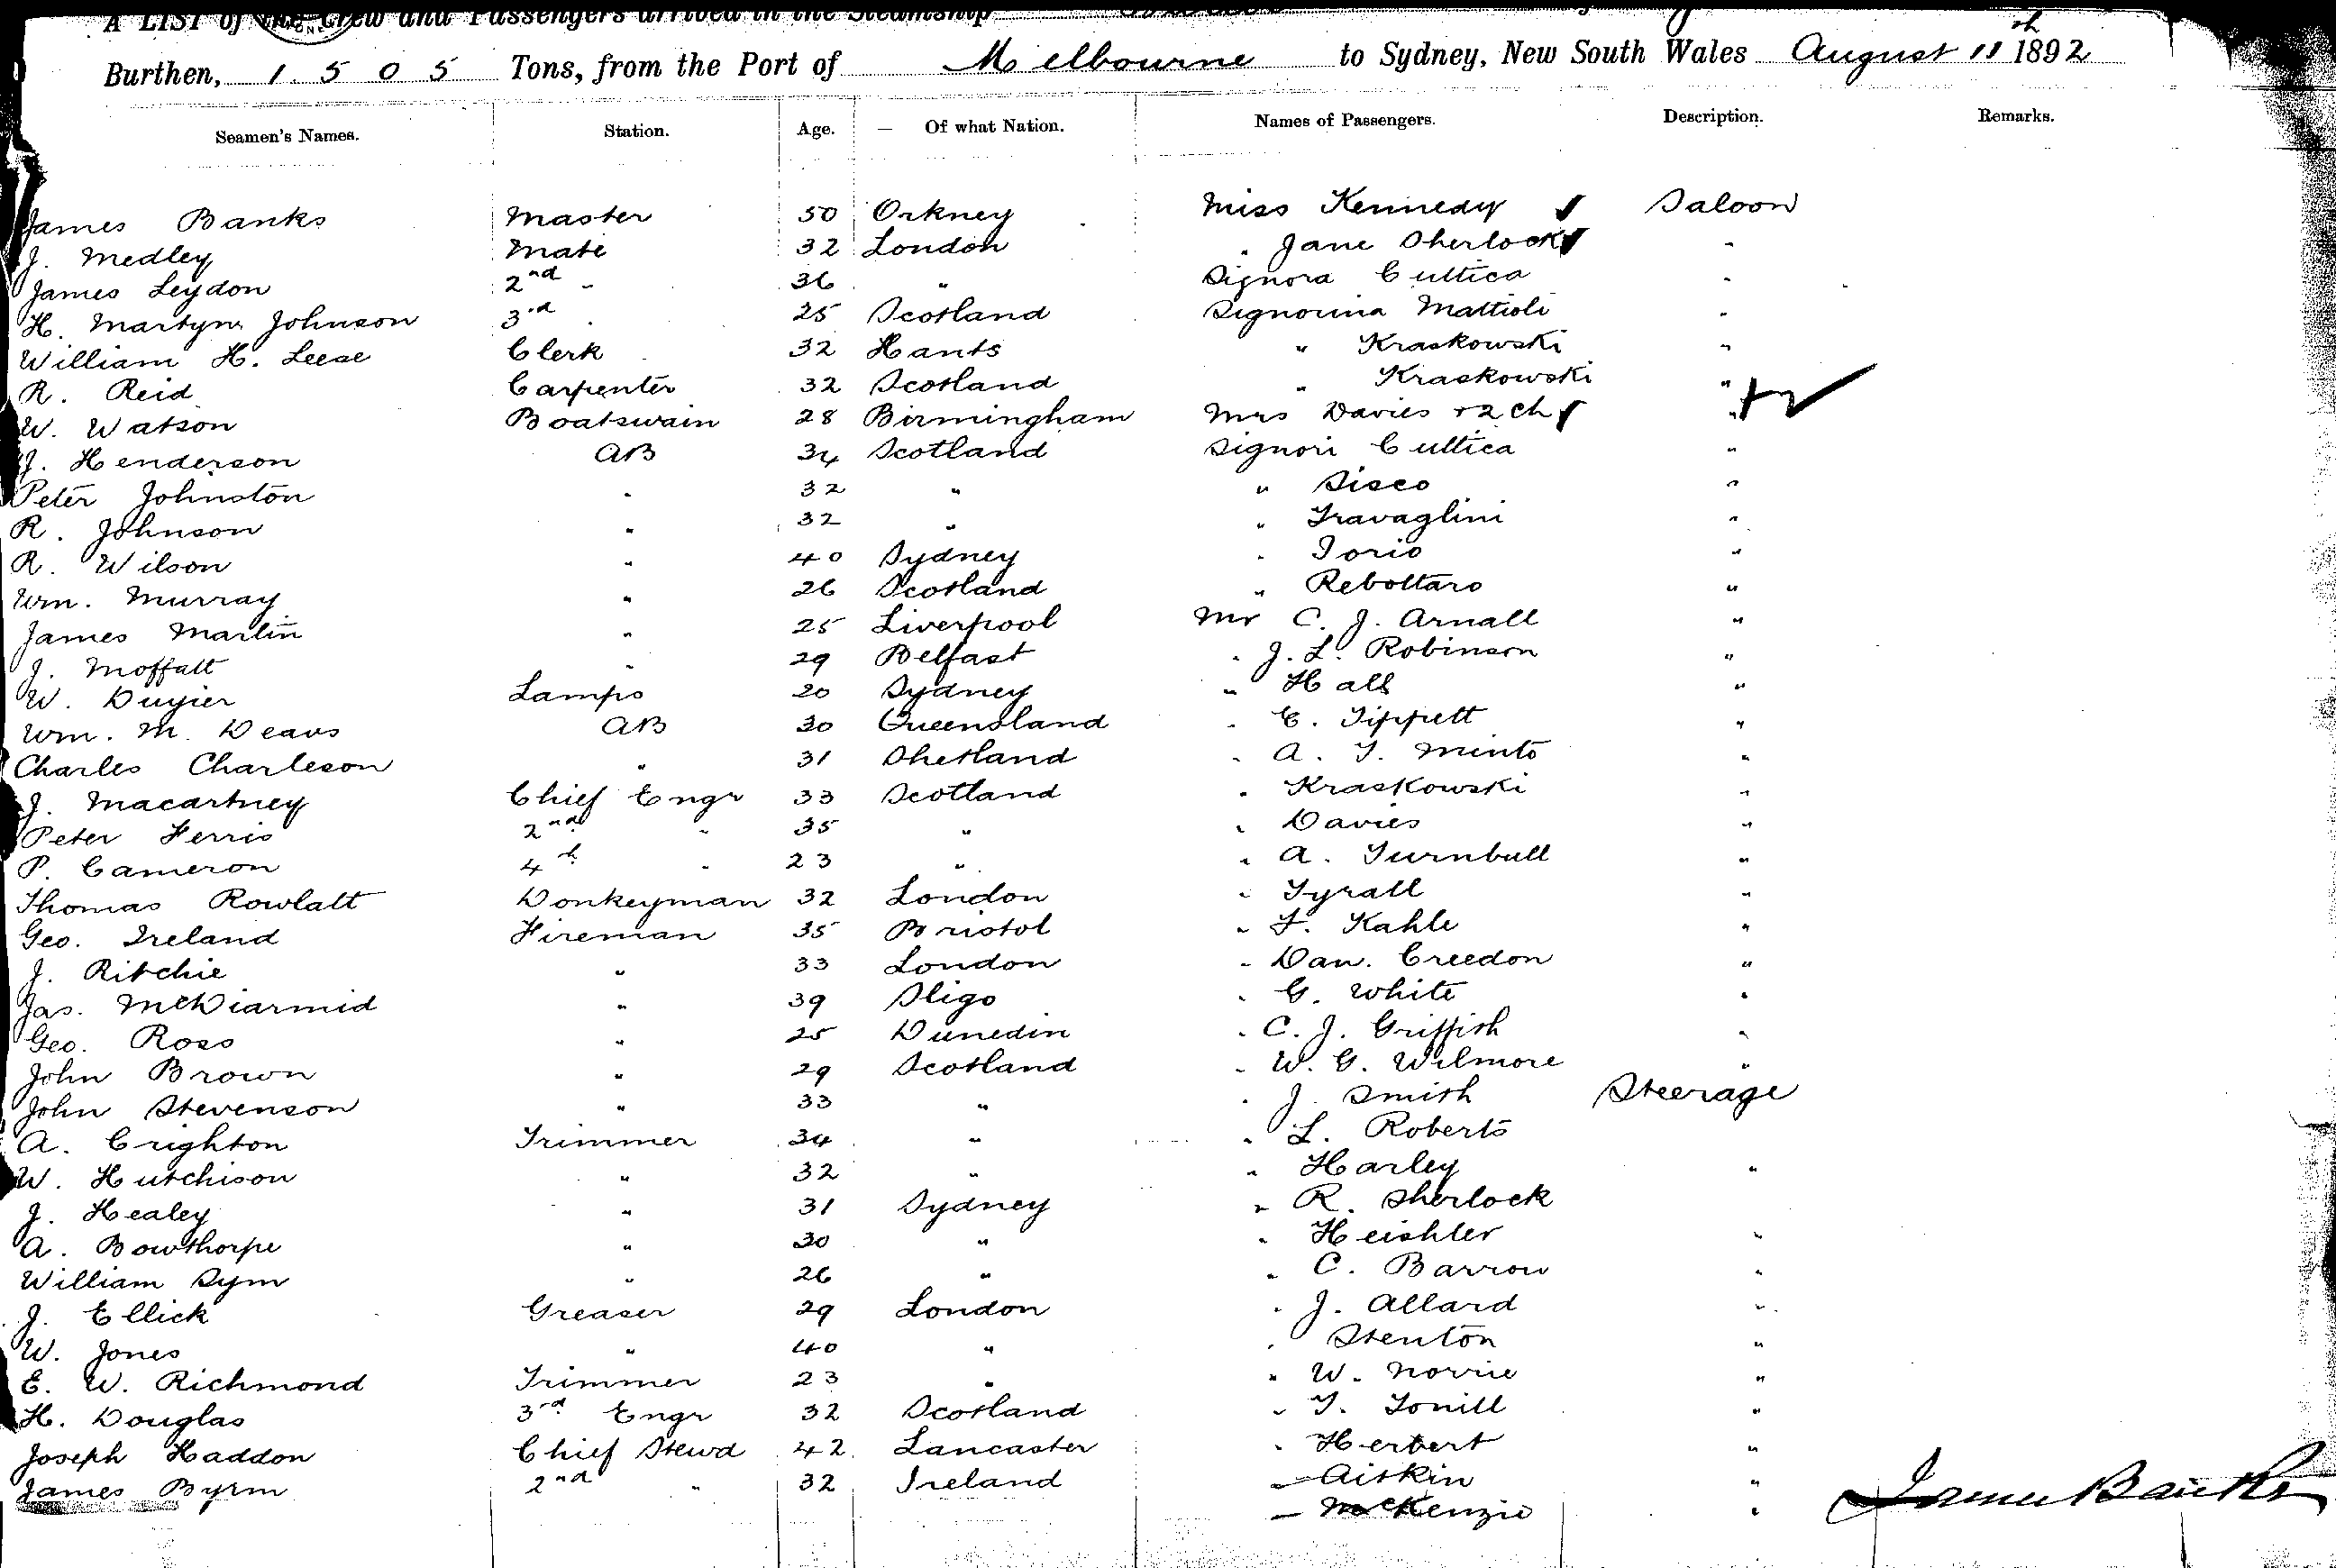 A LIST of the Crew and Passengers arrived in the Steamship
Burthen, 1.505 Tons, from the Port of Melbourne to Sydney, New South Wales August 11th 1892
Seamen's Names. Station. Age. — Of what Nation. Names of Passengers. Description. Remarks.
James Banks Master 50 Orkney Miss Kennedy Saloon
J. Medley Mate 32 London " Jane Sherlock "
James Leydon 2nd " 36 " Signora Cuttica "
H. Martyn Johnson 3rd " 25 Scotland Signorina Mattioli "
William H. Leese Clerk 32 Hants " Kraskowski "
R. Reid Carpenter 32 Scotland " Kraskowski "
W. Watson Boatswain 28 Birmingham Mrs Davies + 2 ch "
J. Henderson AB 34 Scotland Signori Cuttica "
Peter Johnston " 32 " " Sisco "
R. Johnson " 32 " " Travaglini "
R. Wilson " 40 Sydney " Iorio "
Wm. Murray " 26 Scotland " Rebottaro "
James Martin " 25 Liverpool Mr C. J. Arnall "
J. Moffatt " 29 Belfast " J. L. Robinson "
W. Lamps 20 Sydney " Hall "
Wm. M. Deavs AB 30 Queensland " E. Tippett "
Charles Charleson " 31 Shetland " A. T. Minto "
J. Macartney Chief Engr 33 Scotland " Kraskowski "
Peter Ferris 2nd " 35 " " Davies "
P. Cameron 4th " 23 " " A. Turnbull "
Thomas Rowlatt Donkeyman 32 London " Tyrall "
Geo. Ireland Fireman 35 Bristol " F. Kahle "
J. Ritchie " 33 London " Dan. Creedon "
Jas. McDiarmid " 39 Sligo " G. White "
Geo. Ross " 25 Dunedin " C. J. Griffith "
John Brown " 29 Scotland " W. G. Wilmore "
John Stevenson " 33 " " J. Smith Steerage
A. Crighton Trimmer 34 " " L. Roberts
W. Hutchison " 32 " " Harley "
J. Healey " 31 Sydney " R. Sherlock
A. Bowthorpe " 30 " " Heishler "
William Sym " 26 " " C. Barrow "
J. Ellick Greaser 29 London " J. Allard "
W. Jones " 40 " " Stenton "
E. W. Richmond Trimmer 23 " " W. Norrie "
H. Douglas 3rd Engr 32 Scotland " T. Tonill "
Joseph Haddon Chief Stewd 42 Lancaster " Herbert "
James Byrm 2nd " 32 Ireland — Aitkin "
— McKenzie "
James Banks